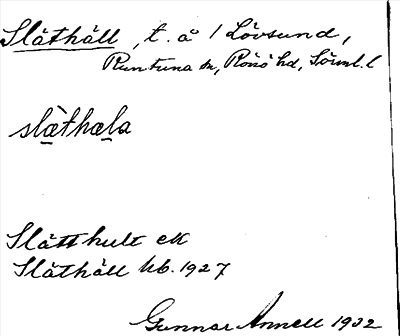 Slåthäll, t. å / Lövsund,
Runtuna sn, Rönö hd, Söml. l
slàthæla
Slätthult ek
Slåthäll kb. 1927
Gunnar Annell 1932